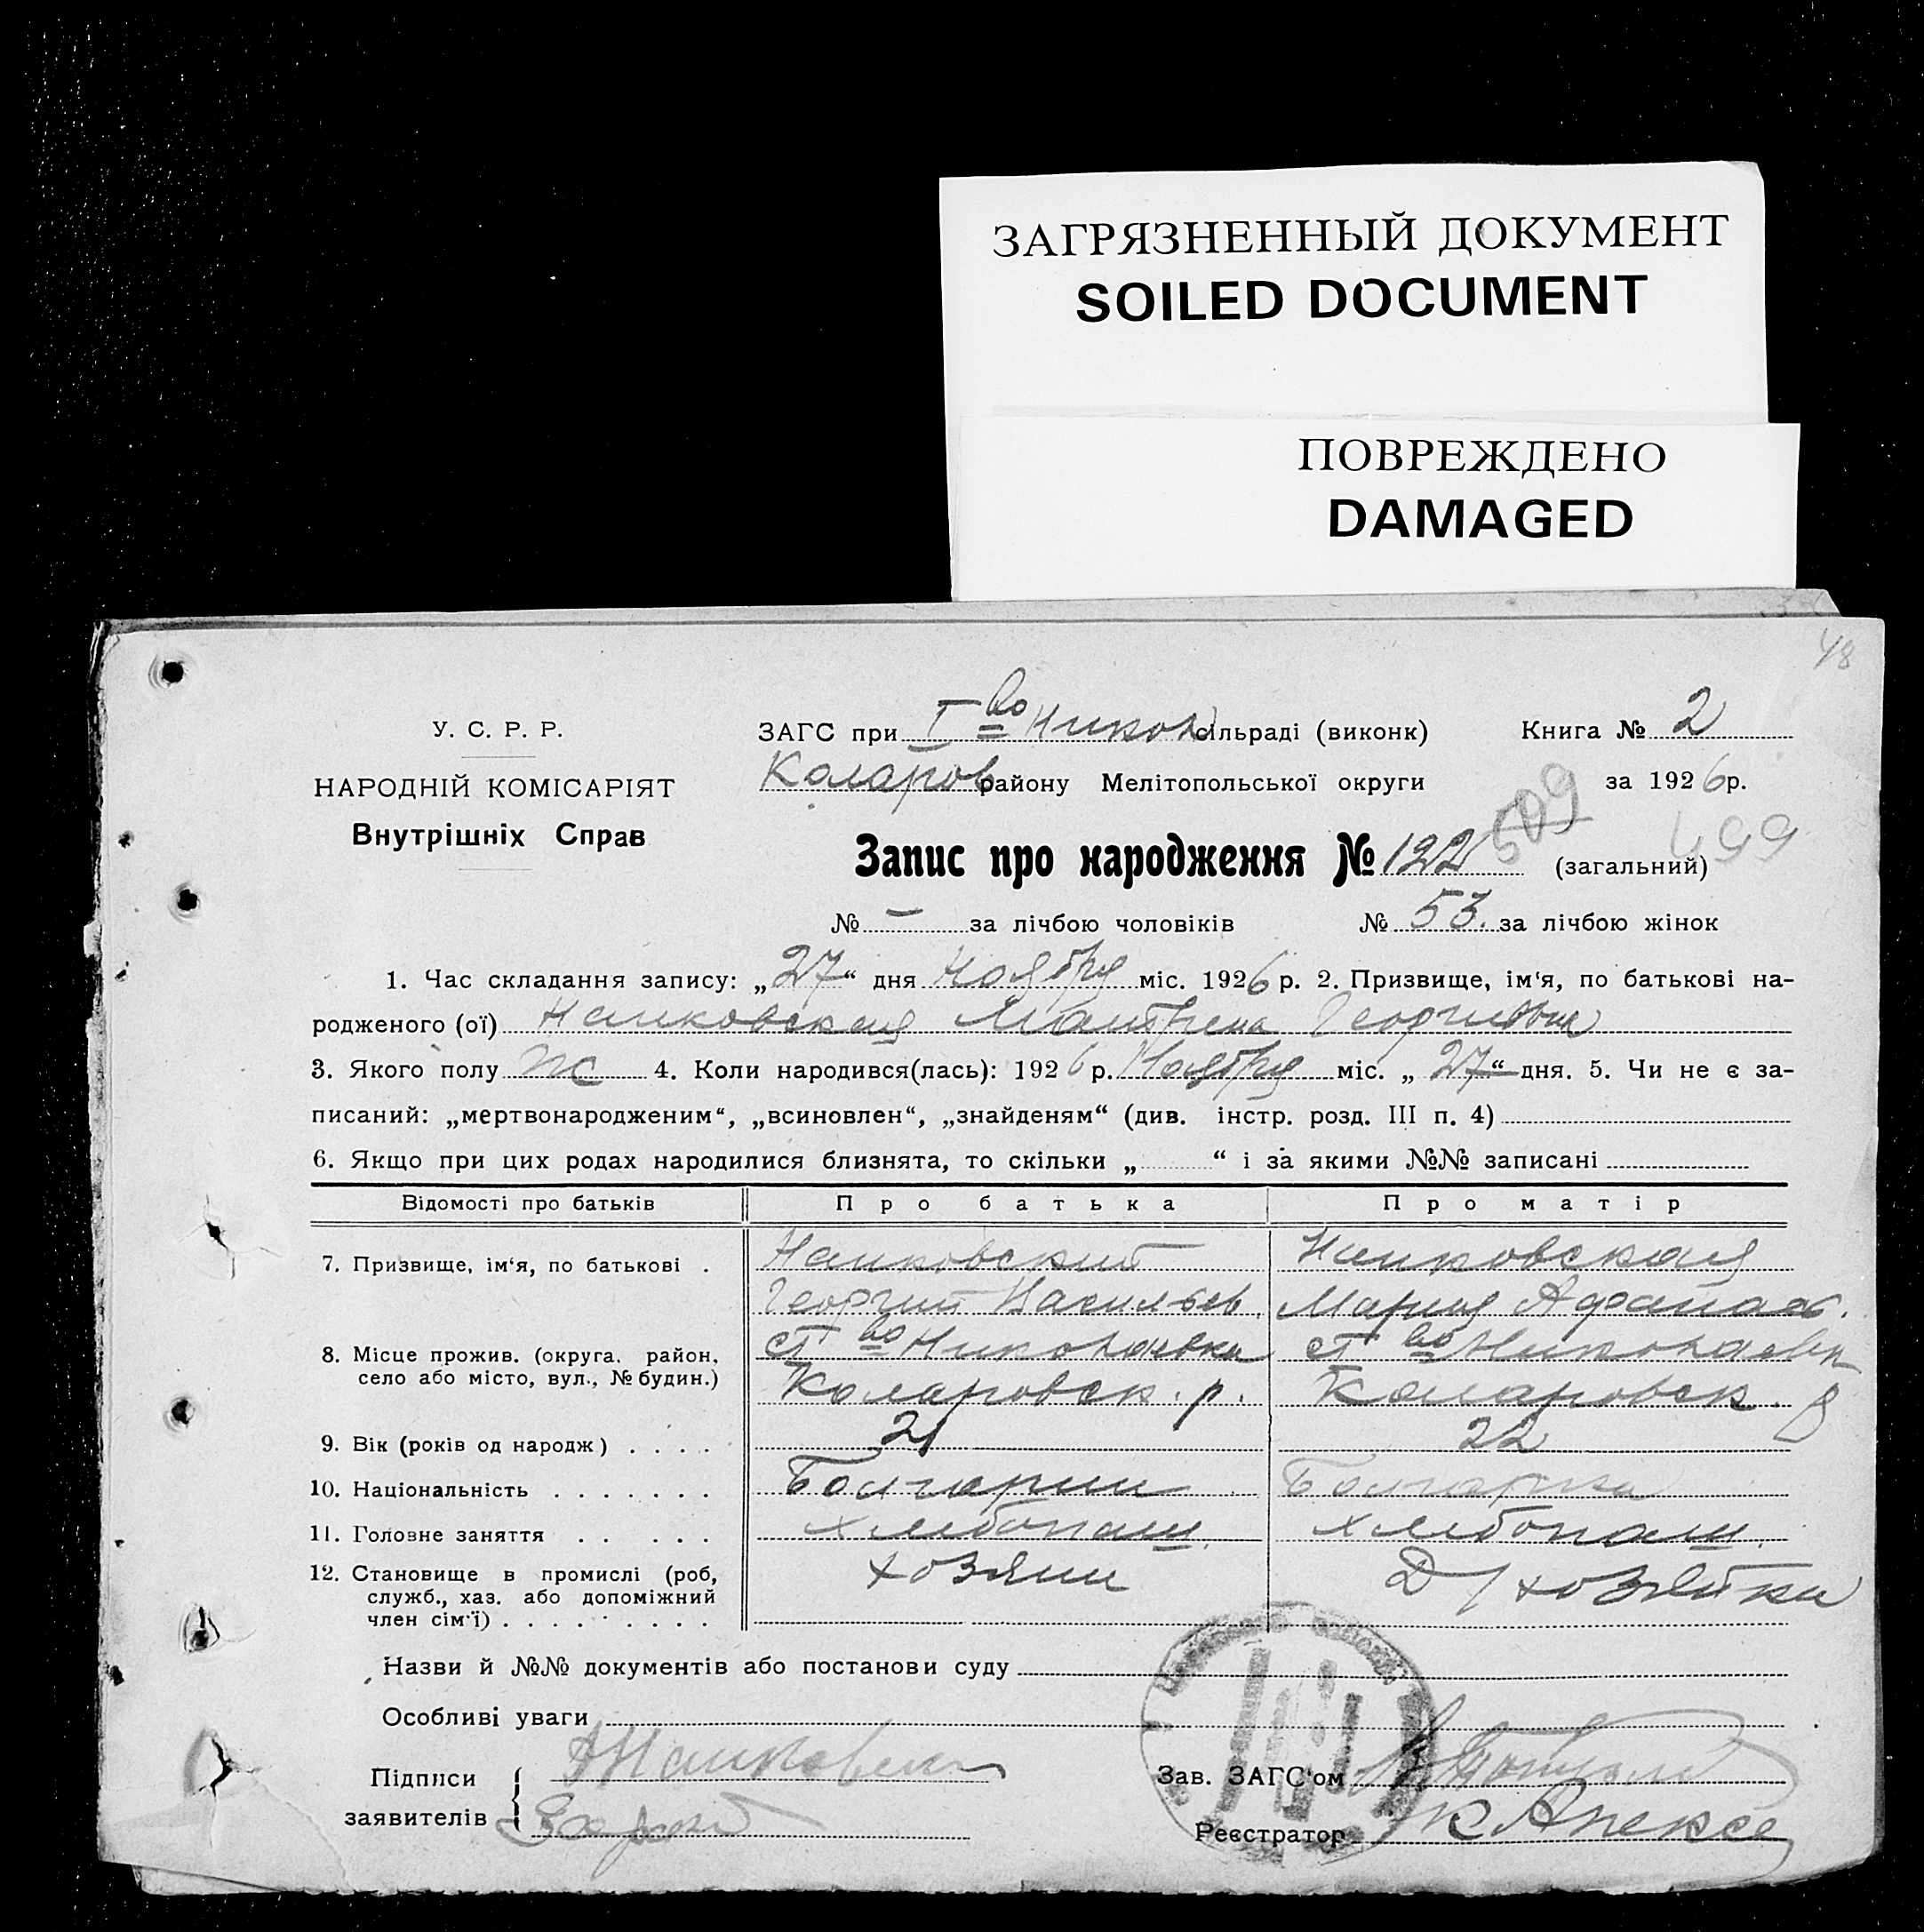 ЗАГРЯЗНЕННЫЙ ДОКУМЕНТ
SOILED DOCUMENT
ПОВРЕЖДЕНО
DAMAGED
48
У. С. Р. Р.
НАРОДНІЙ КОМІСАРІЯТ
Внутрішніх Справ
ЗАГС при I во Никол сільраді (виконк) Книга № 2
Коларов району Мелітопольської округи за 1926р.
509 499
Запис про народження № 122 (загальний)
№ — за лічбою чоловіків № 53. за лічбою жінок
1. Час складання запису: „27“ дня Ноября міс. 1926 р. 2. Призвище, ім‘я, по батькові на-
родженого (ої) Наиковская Георгиевна
3. Якого полу ж 4. Коли народився(лась): 1926 р. Ноября міс. „27“ дня. 5. Чи не є за-
писаний: „мертвонародженим“, „всиновлен“, „знайденям“ (див. інстр. розд. III п. 4)
6. Якщо при цих родах народилися близнята, то скільки „ “ і за якими №№ записані
Відомості про батьків Про батька Про матір
7. Призвище, ім‘я, по батькові . Наиковский Наиковская
Георгий Васильев. Мария Афанас.
8. Місце прожив. (округа, район, село або місто, вул., № будин.) ст во Николаевка ст во Николаевк
Коларовск. р. Коларовск. р
9. Вік (років од народж) . . . . 21 22
10. Національність . . . . . . . Болгарин Болгарка
11. Головне заняття . . . . . хлебопаш. хлебопаш.
12. Становище в промислі (роб, служб., хаз. або допоміжний член сім‘ї) . . . . . . . . . хозяин Д/хозяйка
Назви й №№ документів або постанови суду
Особливі уваги
Підписи заявителів { Зав. ЗАГС‘ом
Реєстратор К Алексе